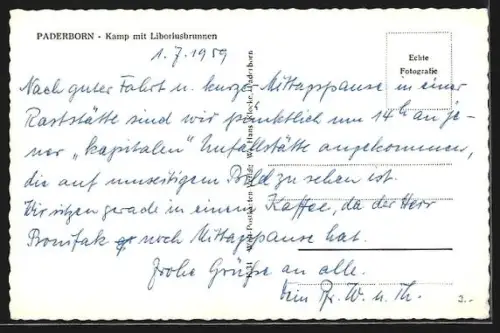 PADERBORN - Kamp mit Liboriusbrunnen
1.7.1959
Echte
Fotografie
Nach guter Fahrt u. kurzer Mittagspause in einer
Raststätte sind wir pünktlich um 14 h an je-
ner „kapitalen" Unfallstätte angekommen,
die auf umseitigem Bild zu sehen ist.
Wir sitzen gerade in einem Kaffee, da der Herr
noch Mittagspause hat.
Frohe Grüße an alle.
W. u. Th.